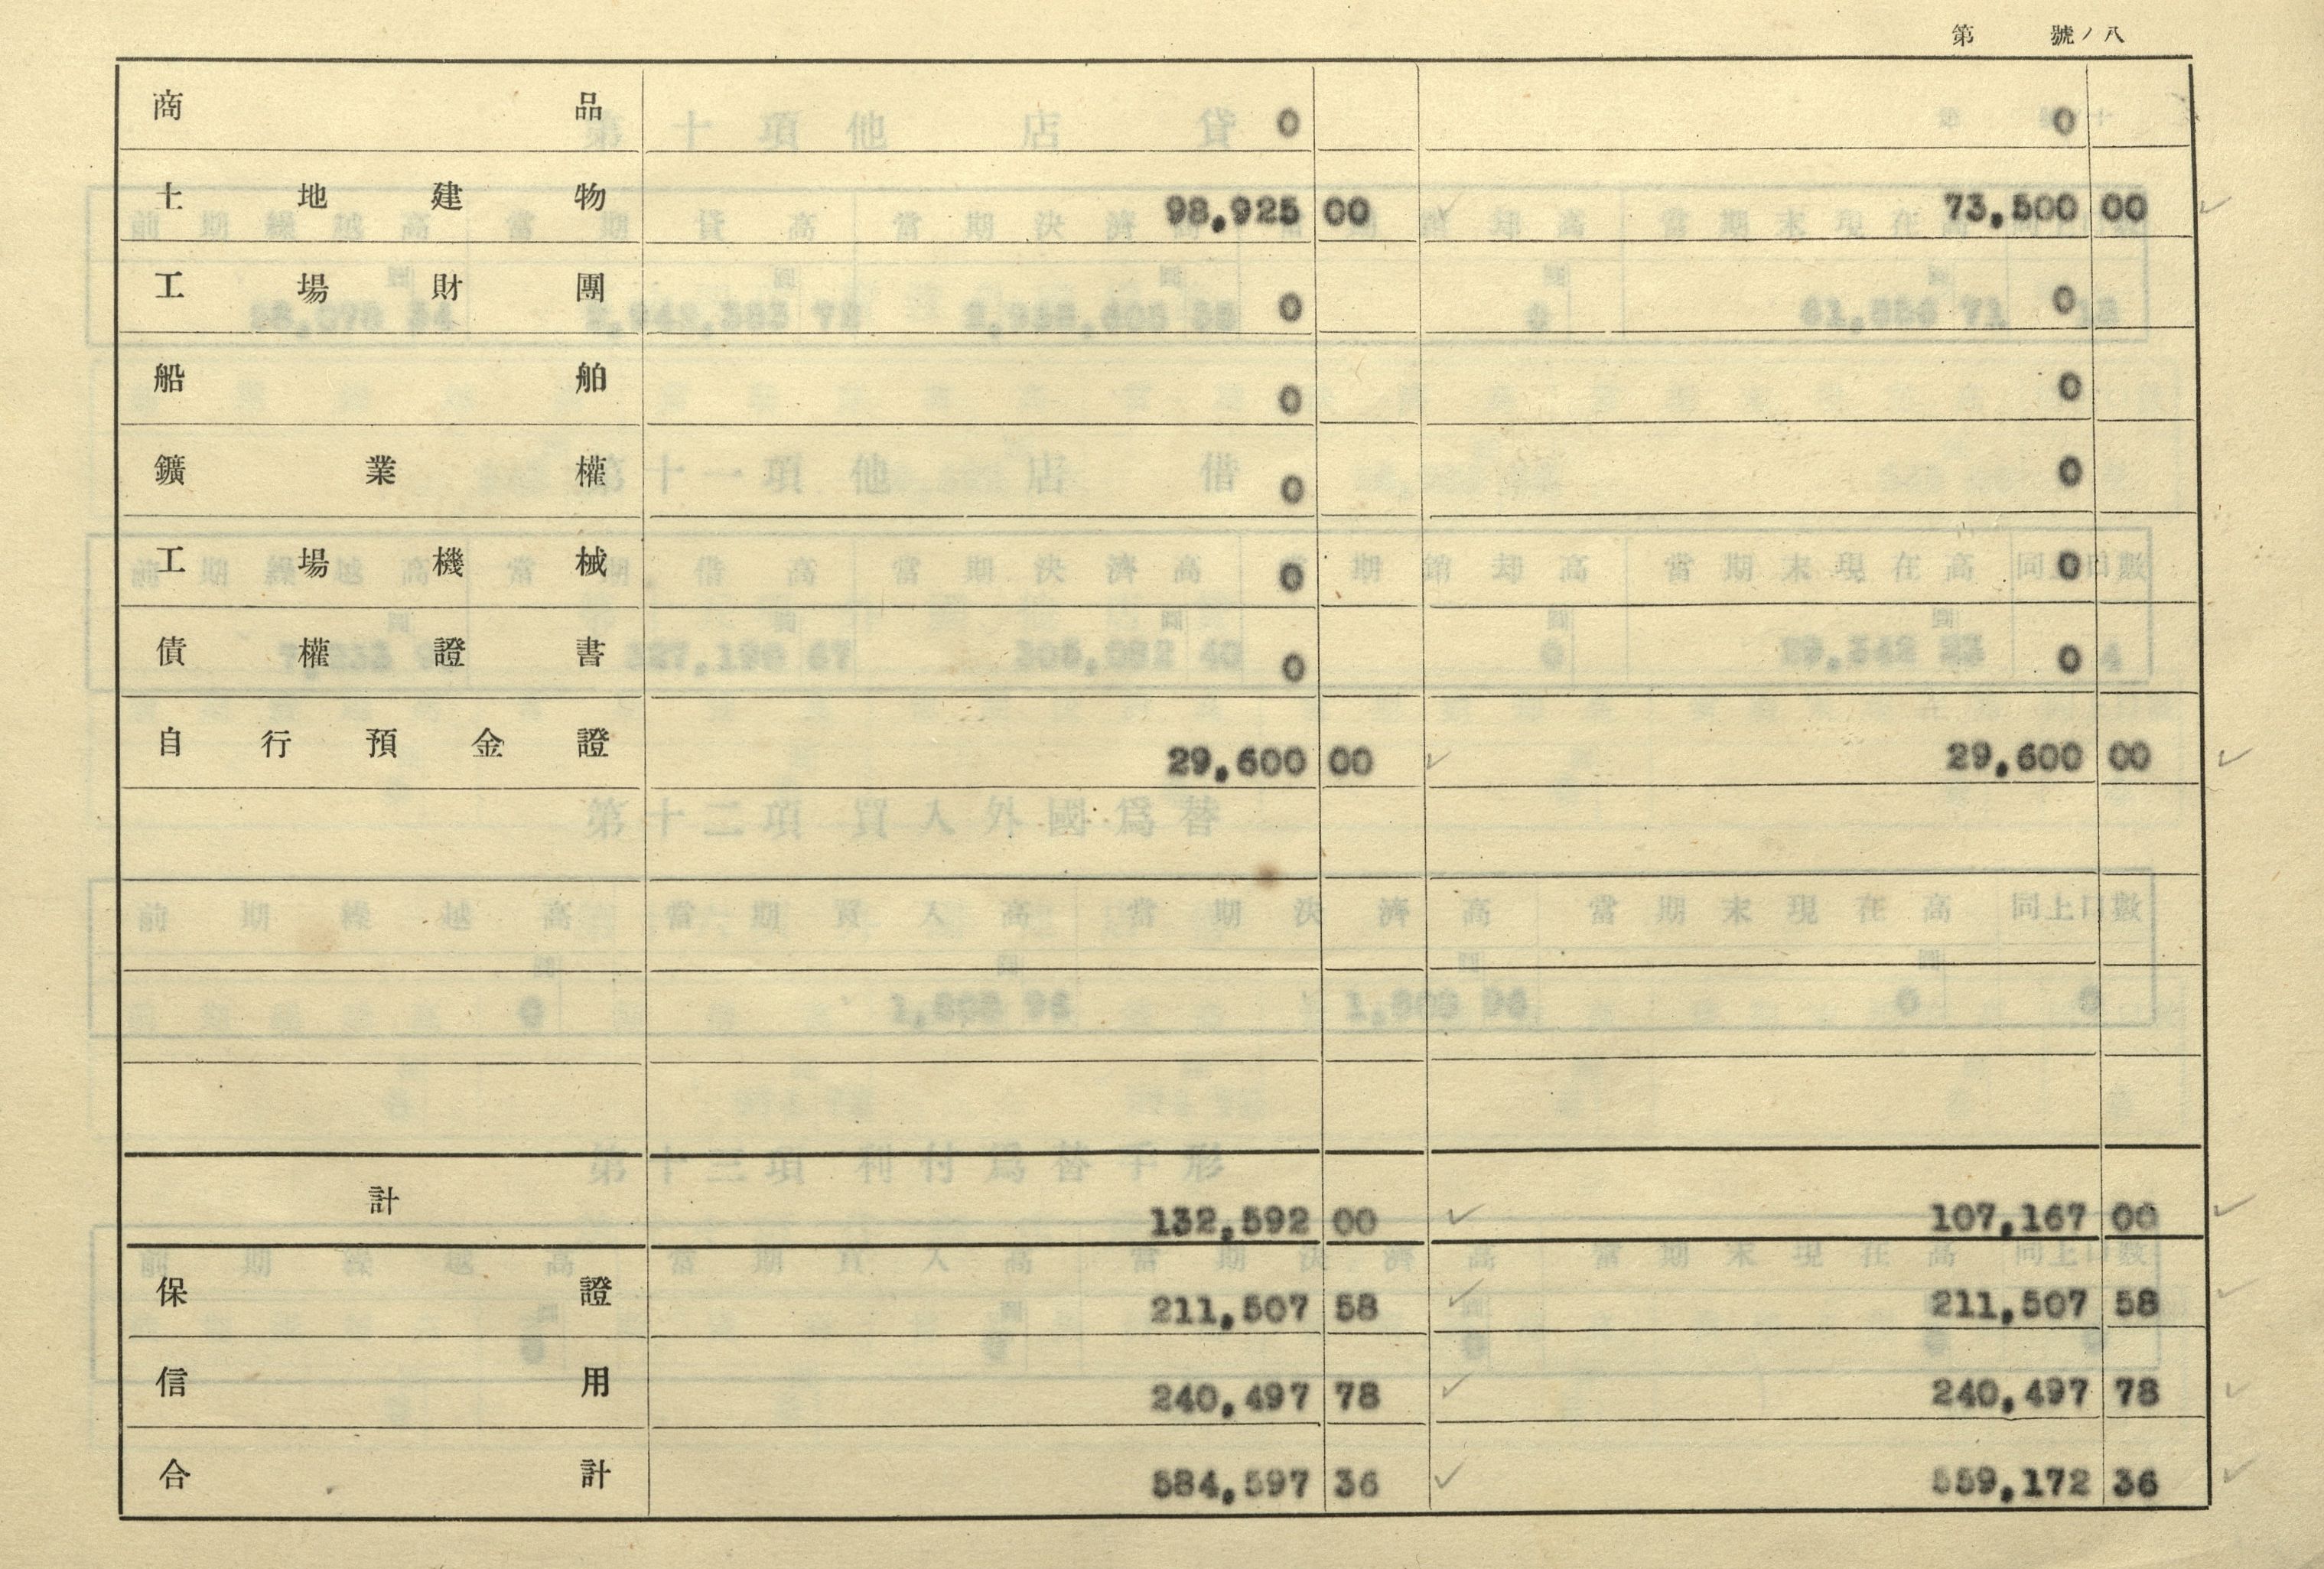 第 號ノ八
商品 0 0
土地建物 98,925 00 73,500 00
工場財團 0 0
船舶 0 0
鑛業權 0 0
工場機械 0 0
債權證書 0 0
自行預金證 29,600 00 29,600 00
計 132,592 00 107,167 00
保證 211,507 58 211,507 58
信用 240,497 78 240,497 78
合計 584,597 36 559,172 36